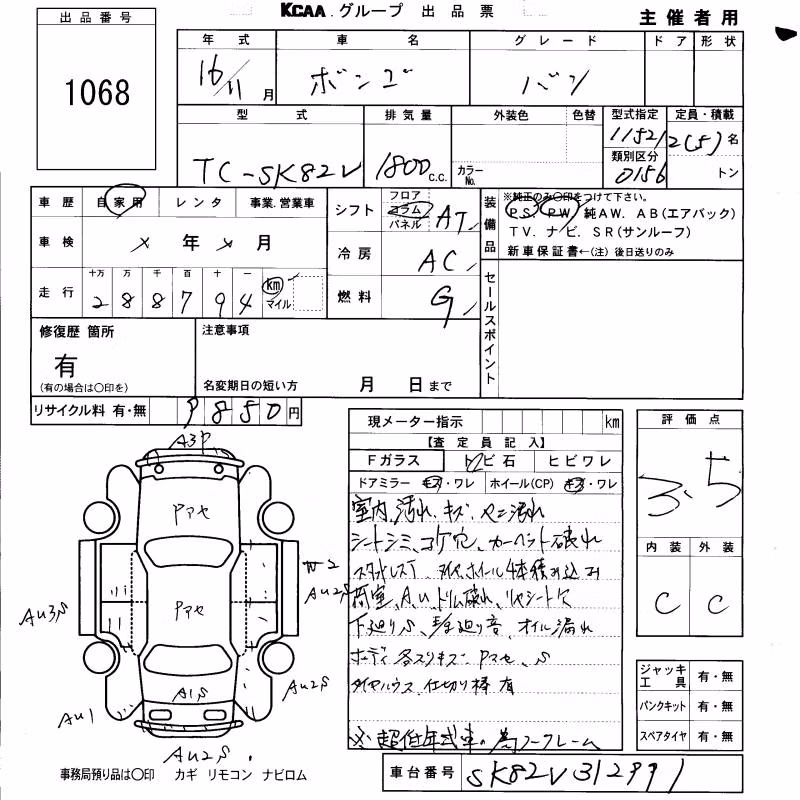 KCAA.グループ 出品票
主催者用
出品番号
1068
年式 車名 グレード ドア 形状
16/11月 ボンゴ バン
型式 排気量 外装色 色替 型式指定 定員・積載
TC-SK82V 1800 c.c. カラーNo. 11521 2(5)名
類別区分
0156 トン
車歴 自家用 レンタ 事業.営業車
車検 × 年 × 月
走行 十万 万 千 百 十 一
2 8 8 7 9 4 km マイル
シフト フロア コラム パネル AT
冷房 AC
燃料 G
装備品 ※純正のみ○印をつけて下さい。
P.S. P.W 純AW. AB(エアバック)
T.V. ナビ. SR(サンルーフ)
新車保証書←(注)後日送りのみ
セールスポイント
修復歴 箇所
有
(有の場合は○印を)
注意事項
名変期日の短い方 月 日まで
リサイクル料 有・無 9850円
現メーター指示 km
【査定員記入】
Fガラス トビ石 ヒビワレ
ドアミラー キズ・ワレ ホイール(CP) キズ・ワレ
室内、汚れ、キズ、ヤニ汚れ
シートシミ、コゲ穴、カーペット破れ
スタットレスT タイヤ、ホイール4本積み込み
荷室、A、U、トリム破れ、リヤシート穴
下廻りS、 廻り音、オイル漏れ
ボディ各スリキズ Pマセ、S
タイヤハウス、仕切り棒有
※超低年式車の為ノークレーム
評価点
3.5
内装 外装
C C
ジャッキ工具 有・無
パンクキット 有・無
スペアタイヤ 有・無
A3P
Pマセ
Pマセ
A1S
W2
AU2S
AU3S
AU2S
AU1
AU2S
事務局預り品は○印 カギ リモコン ナビロム
車台番号 SK82V312991